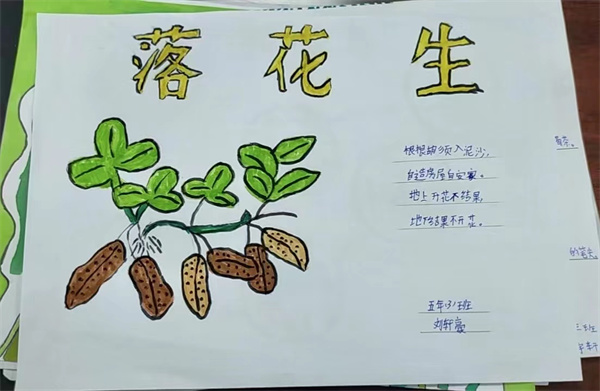 落花生
根根细须入泥沙,
自造房屋自安家。
地上开花不结果,
地下结果不开花。
五年(3)班
刘轩豪
的喜爱。